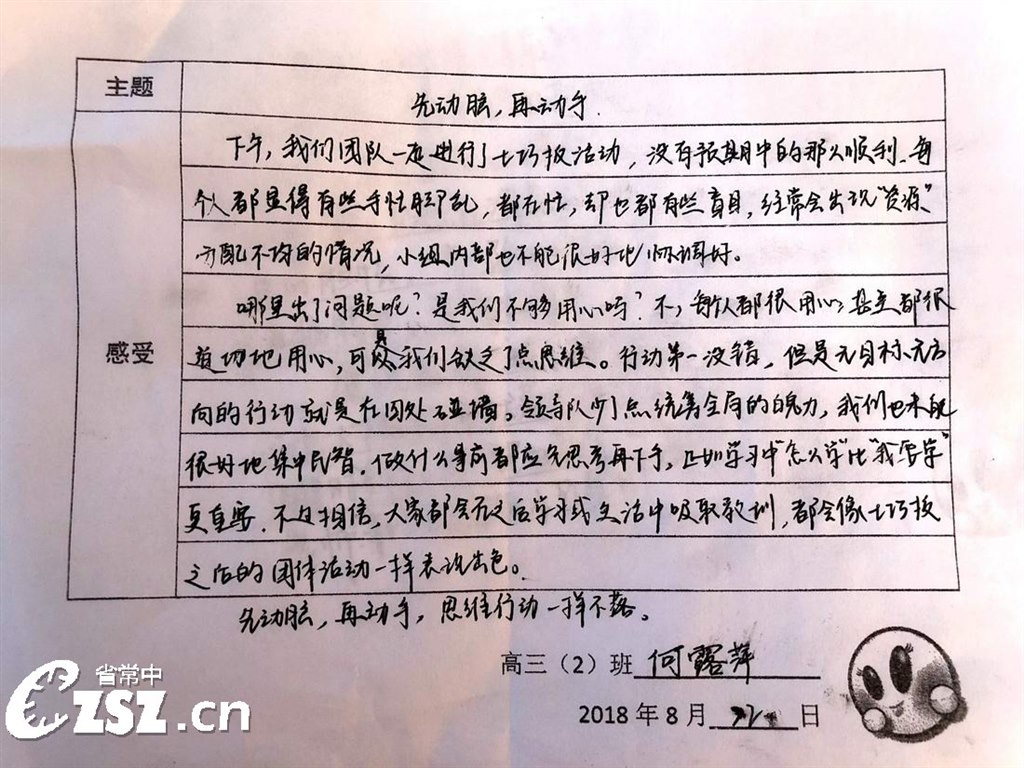 主题
先动脑，再动手.
下午，我们团队一起进行了七巧板活动，没有预期中的那么顺利，每
个人都显得有些手忙脚乱，都在忙，却也都有些盲目，经常会出现“资源”
分配不均的情况，小组内部也不能很好地协调好。
哪里出了问题呢？是我们不够用心吗？不，每个人都很用心，甚至都很
感受
地用心，可是我们缺乏了点思维。行动第一没错，但是无目标无方
向的行动就是在四处碰壁。领导队少了点统筹全局的魄力，我们也未能
很好地集中民智。做什么事前都应先思考再下手，正如学习中“怎么学”比“我要学”
更重要。不过相信，大家都会在之后学习或生活中吸取教训，都会像七巧板
之后的团体活动一样表现出色。
先动脑，再动手，思维行动一样不落。
高三（2）班 何露萍
2018 年 8 月 22 日
省常中
CZSZ.cn